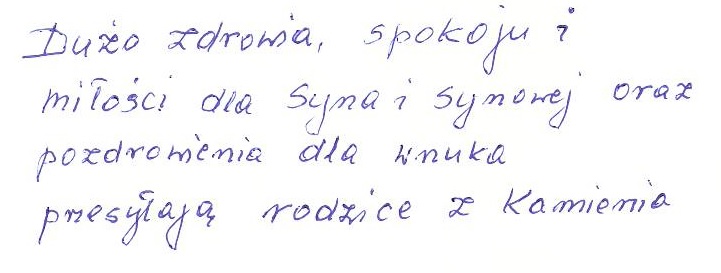 Dużo zdrowia, spokoju i
miłości dla Syna i Synowej oraz
pozdrowienia dla wnuka
przesyłają rodzice z Kamienia